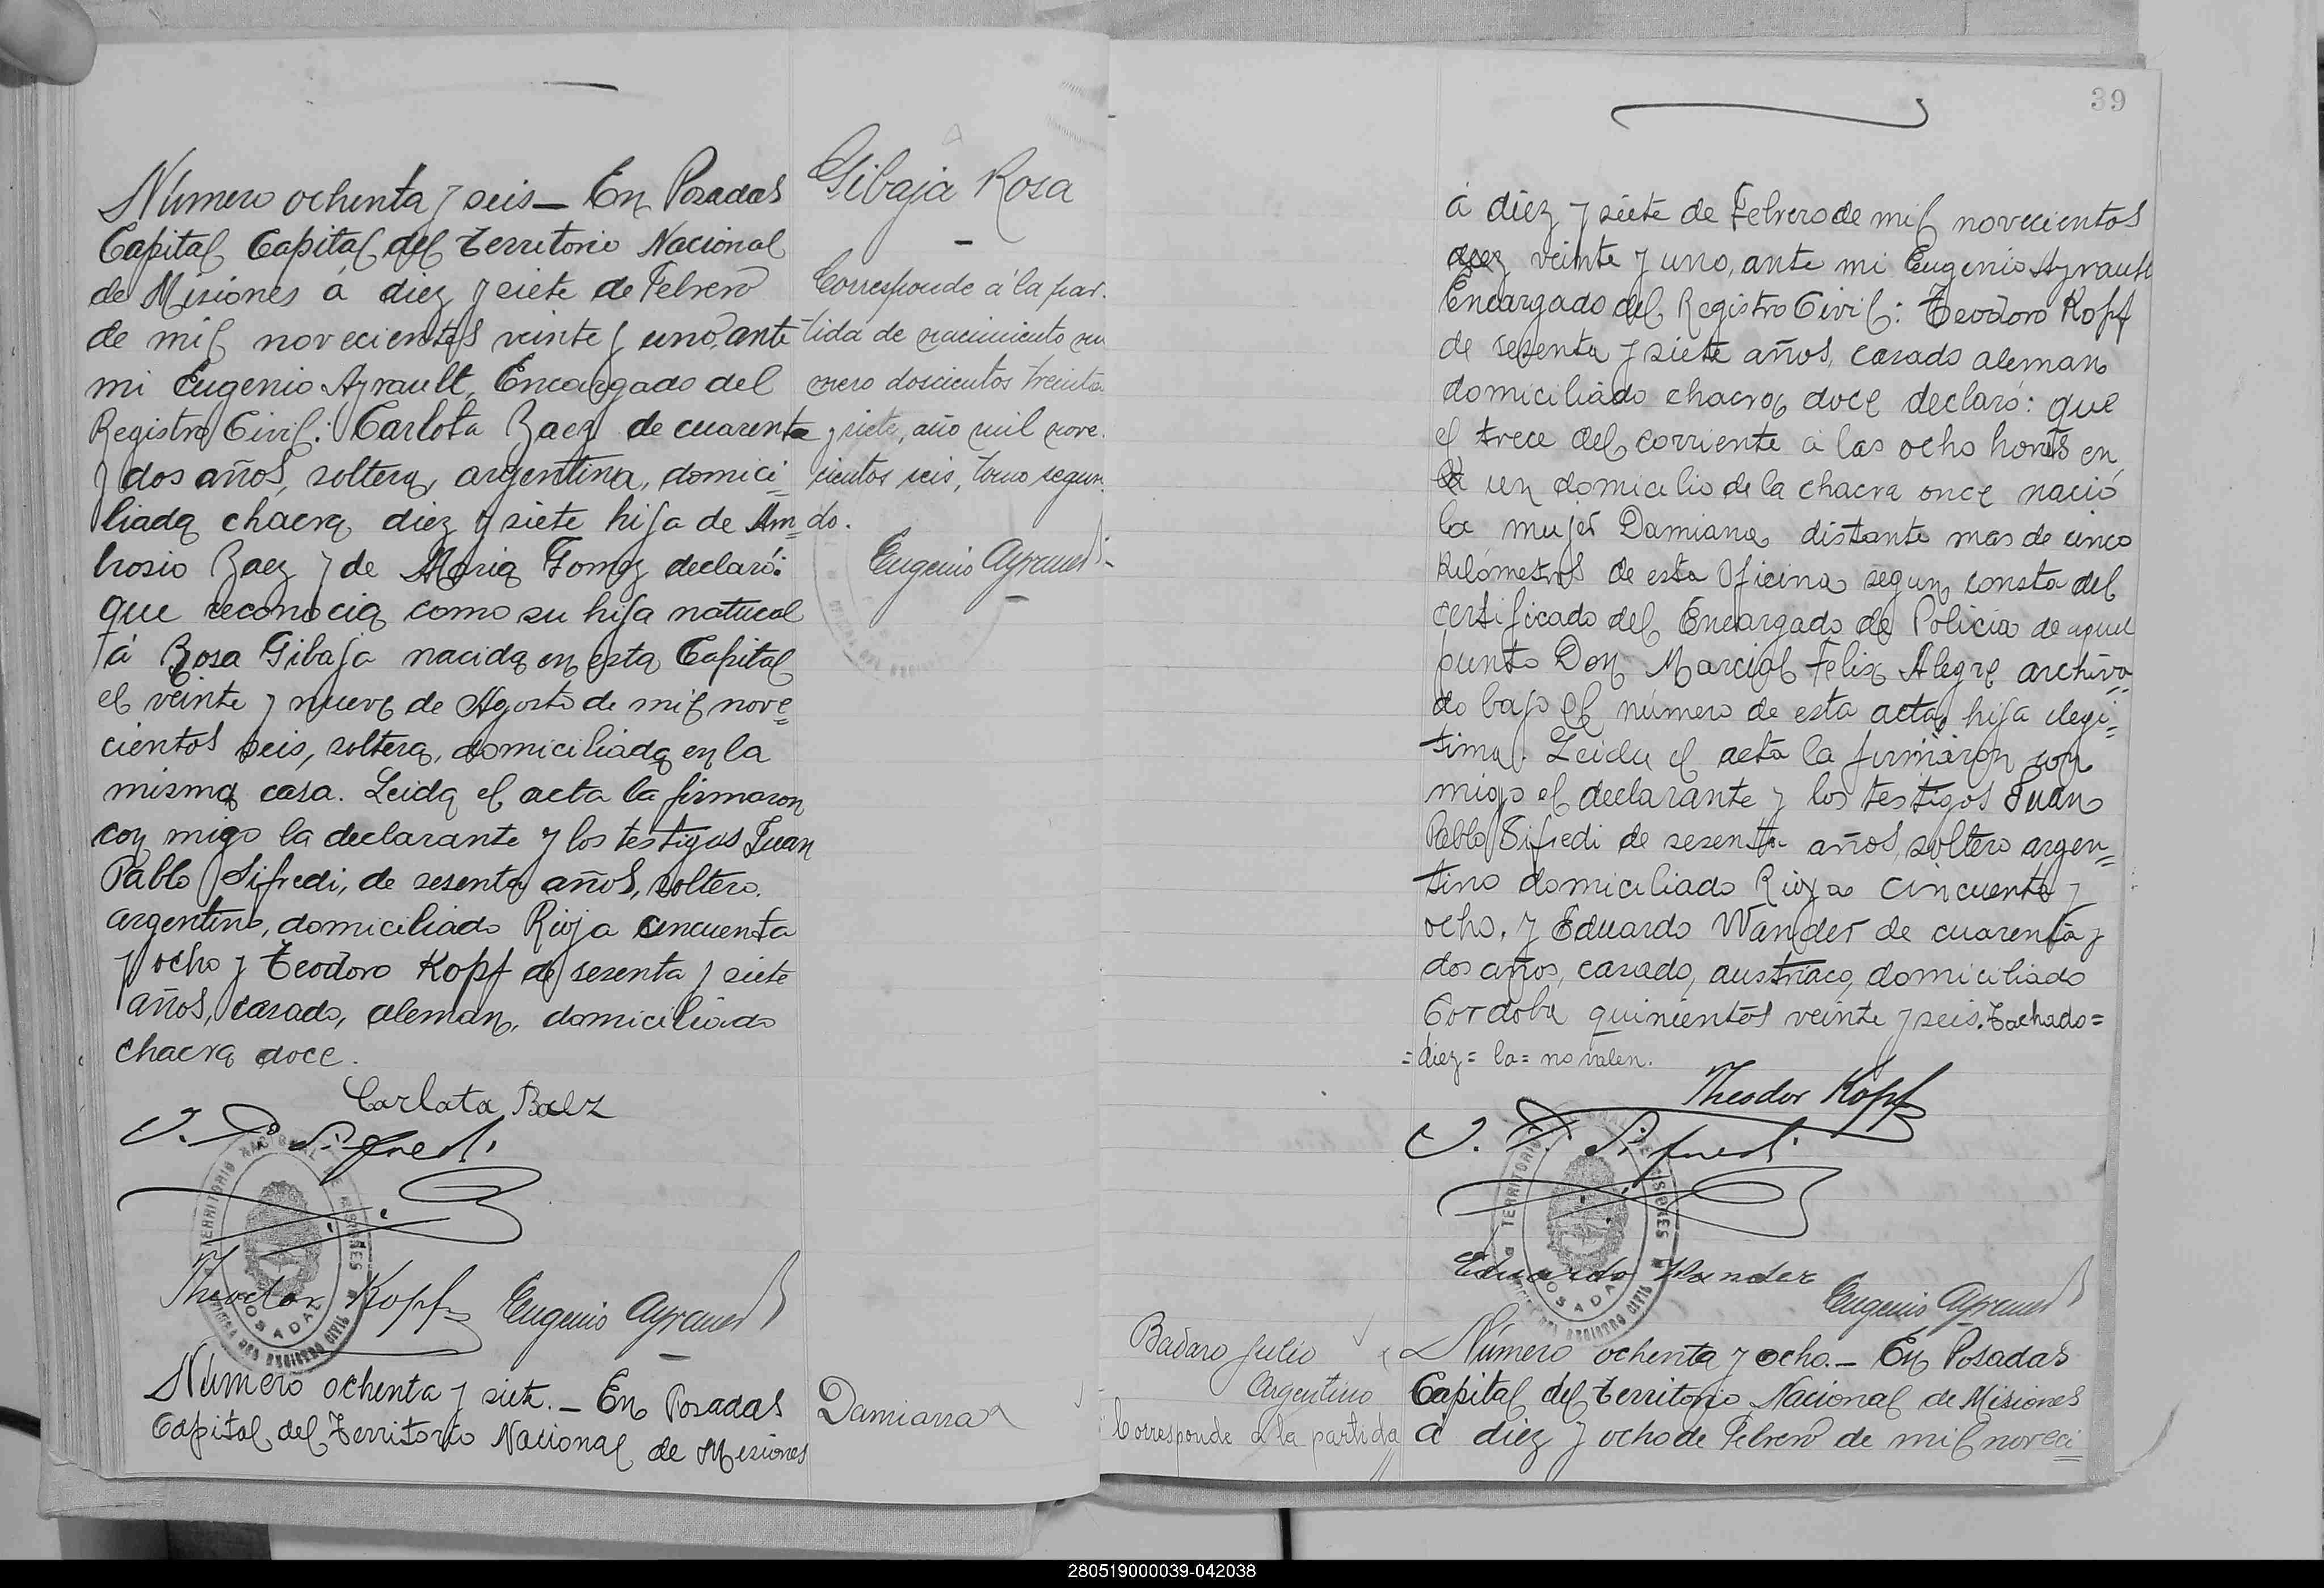 Número ochenta y seis — En Posadas
Capital Capital del Territorio Nacional
de Misiones á diez y siete de Febrero
de mil novecientos veinte y uno, ante
mi Eugenio Ayrault, Encargado del
Registro Civil: Carlota Baez de cuarenta
y dos años, soltera, argentina, domici=
liada chacra diez y siete hija de Am=
brosio Baez y de Maria Gomez declaró:
que reconocia como su hija natural
á Rosa Gibaja nacida en esta Capital
el veinte y nueve de Agosto de mil nove=
cientos seis, soltera, domiciliada en la
misma casa. Leida el acta la firmaron
con migo la declarante y los testigos Juan
Pablo Sifredi, de sesenta años, soltero.
argentino, domiciliado Rioja cincuenta
y ocho y Teodoro Kopf de sesenta y siete
años, casado, aleman, domiciliado
chacra doce.
Carlota Baez
J. P. Sifredi
Theodor Kopf Eugenio Ayrault
TERRITORIO NACIONAL DE MISIONES
POSADAS
OFICINA DEL REGISTRO CIVIL
Número ochenta y siete. — En Posadas
Capital del Territorio Nacional de Misiones
Gibaja Rosa
Corresponde á la par.
tida de nacimiento nu
mero doscientos treinta
y siete, año mil nove.
cientos seis, tomo segun.
do.
Eugenio Ayrault
Damiana
39
á diez y siete de Febrero de mil novecientos
diez veinte y uno, ante mi Eugenio Ayrault
Encargado del Registro Civil: Teodoro Kopf
de sesenta y siete años, casado aleman
domiciliado chacra doce declaró: que
el trece del corriente á las ocho horas en
la un domicilio de la chacra once nació
la mujer Damiana distante mas de cinco
kilómetros de esta Oficina segun consta del
certificado del Encargado de Policia de aquel
punto Don Marcial Felix Alegre archiva=
do bajo el número de esta acta, hija ilegi=
tima. Leida el acta la firmaron con
migo el declarante y los testigos Juan
Pablo Sifredi de sesenta años, soltero argen=
tino domiciliado Rioja cincuenta y
ocho, y Eduardo Wander de cuarenta y
dos años, casado, austriaco, domiciliado
Cordoba quinientos veinte y seis. Tachado=
=diez= la= no valen.
Theodor Kopf
J. P. Sifredi
Eduardo Wander
Eugenio Ayrault
TERRITORIO NACIONAL DE MISIONES
POSADAS
OFICINA DEL REGISTRO CIVIL
Badaro Julio
Argentino
Corresponde á la partida
Número ochenta y ocho. — En Posadas
Capital del Territorio Nacional de Misiones
á diez y ocho de Febrero de mil noveci=
280519000039-042038